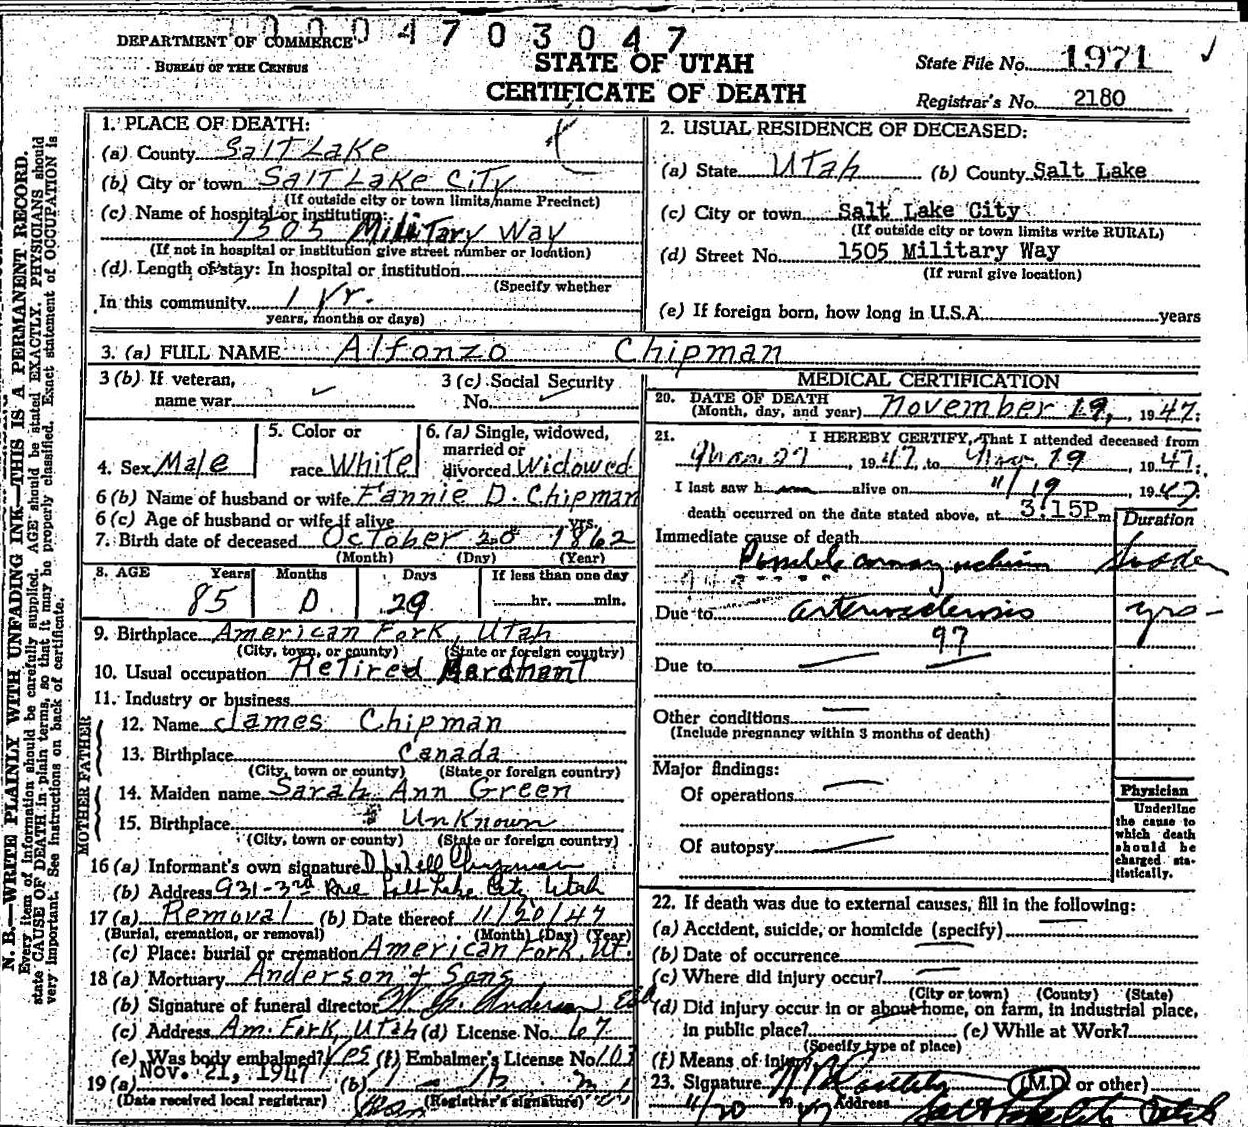 0004703047
DEPARTMENT OF COMMERCE
BUREAU OF THE CENSUS
STATE OF UTAH
CERTIFICATE OF DEATH
State File No. 1971
Registrar's No. 2180
N. B.—WRITE PLAINLY WITH UNFADING INK—THIS IS A PERMANENT RECORD.
Every item of information should be carefully supplied. AGE should be stated EXACTLY. PHYSICIANS should
state CAUSE OF DEATH in plain terms, so that it may be properly classified. Exact statement of OCCUPATION is
very important. See instructions on back of certificate.
1. PLACE OF DEATH:
(a) County Salt Lake
(b) City or town Salt Lake City
(If outside city or town limits name Precinct)
(c) Name of hospital or institution:
1505 Military Way
(If not in hospital or institution give street number or location)
(d) Length of stay: In hospital or institution
(Specify whether
In this community 1 Yr.
years, months or days)
2. USUAL RESIDENCE OF DECEASED:
(a) State Utah (b) County Salt Lake
(c) City or town Salt Lake City
(If outside city or town limits write RURAL)
(d) Street No. 1505 Military Way
(If rural give location)
(e) If foreign born, how long in U.S.A. years
3. (a) FULL NAME Alfonzo Chipman
3 (b) If veteran,
name war
3 (c) Social Security
No.
4. Sex Male
5. Color or
race White
6. (a) Single, widowed,
married or
divorced Widowed
6 (b) Name of husband or wife Fannie D. Chipman
6 (c) Age of husband or wife if alive yrs.
7. Birth date of deceased October 20 1862
(Month) (Day) (Year)
8. AGE Years Months Days If less than one day
85 0 29 hr. min.
9. Birthplace American Fork, Utah
(City, town, or county) (State or foreign country)
10. Usual occupation Retired Merchant
11. Industry or business
FATHER
12. Name James Chipman
13. Birthplace Canada
(City, town or county) (State or foreign country)
MOTHER
14. Maiden name Sarah Ann Green
15. Birthplace Unknown
(City, town or county) (State or foreign country)
16 (a) Informant's own signature Chipman
(b) Address 931-3rd Ave Salt Lake City Utah
17 (a) Removal (b) Date thereof 11/20/47
(Burial, cremation, or removal) (Month) (Day) (Year)
(c) Place: burial or cremation American Fork, Ut.
18 (a) Mortuary Anderson + Sons
(b) Signature of funeral director Anderson
(c) Address Am. Fork, Utah (d) License No. 67
(e) Was body embalmed? Yes (f) Embalmer's License No. 103
19 (a) Nov. 21, 1947 (b)
(Date received local registrar) (Registrar's signature)
MEDICAL CERTIFICATION
20. DATE OF DEATH
(Month, day, and year) November 19, 1947.
21. I HEREBY CERTIFY, That I attended deceased from
27, 1947, to Nov. 19, 1947.
I last saw h alive on 11/19, 1947
death occurred on the date stated above, at 3:15P m
Duration
Immediate cause of death
Possible coronary Sudden
Due to arteriosclerosis yrs-
97
Due to
Other conditions
(Include pregnancy within 3 months of death)
Major findings:
Of operations
Of autopsy
Physician
Underline
the cause to
which death
should be
charged sta-
tistically.
22. If death was due to external causes, fill in the following:
(a) Accident, suicide, or homicide (specify)
(b) Date of occurrence
(c) Where did injury occur?
(City or town) (County) (State)
(d) Did injury occur in or about home, on farm, in industrial place,
in public place? (e) While at Work?
(Specify type of place)
(f) Means of injury
23. Signature (M.D. or other)
11/20 1947 Address Salt Lake City Utah